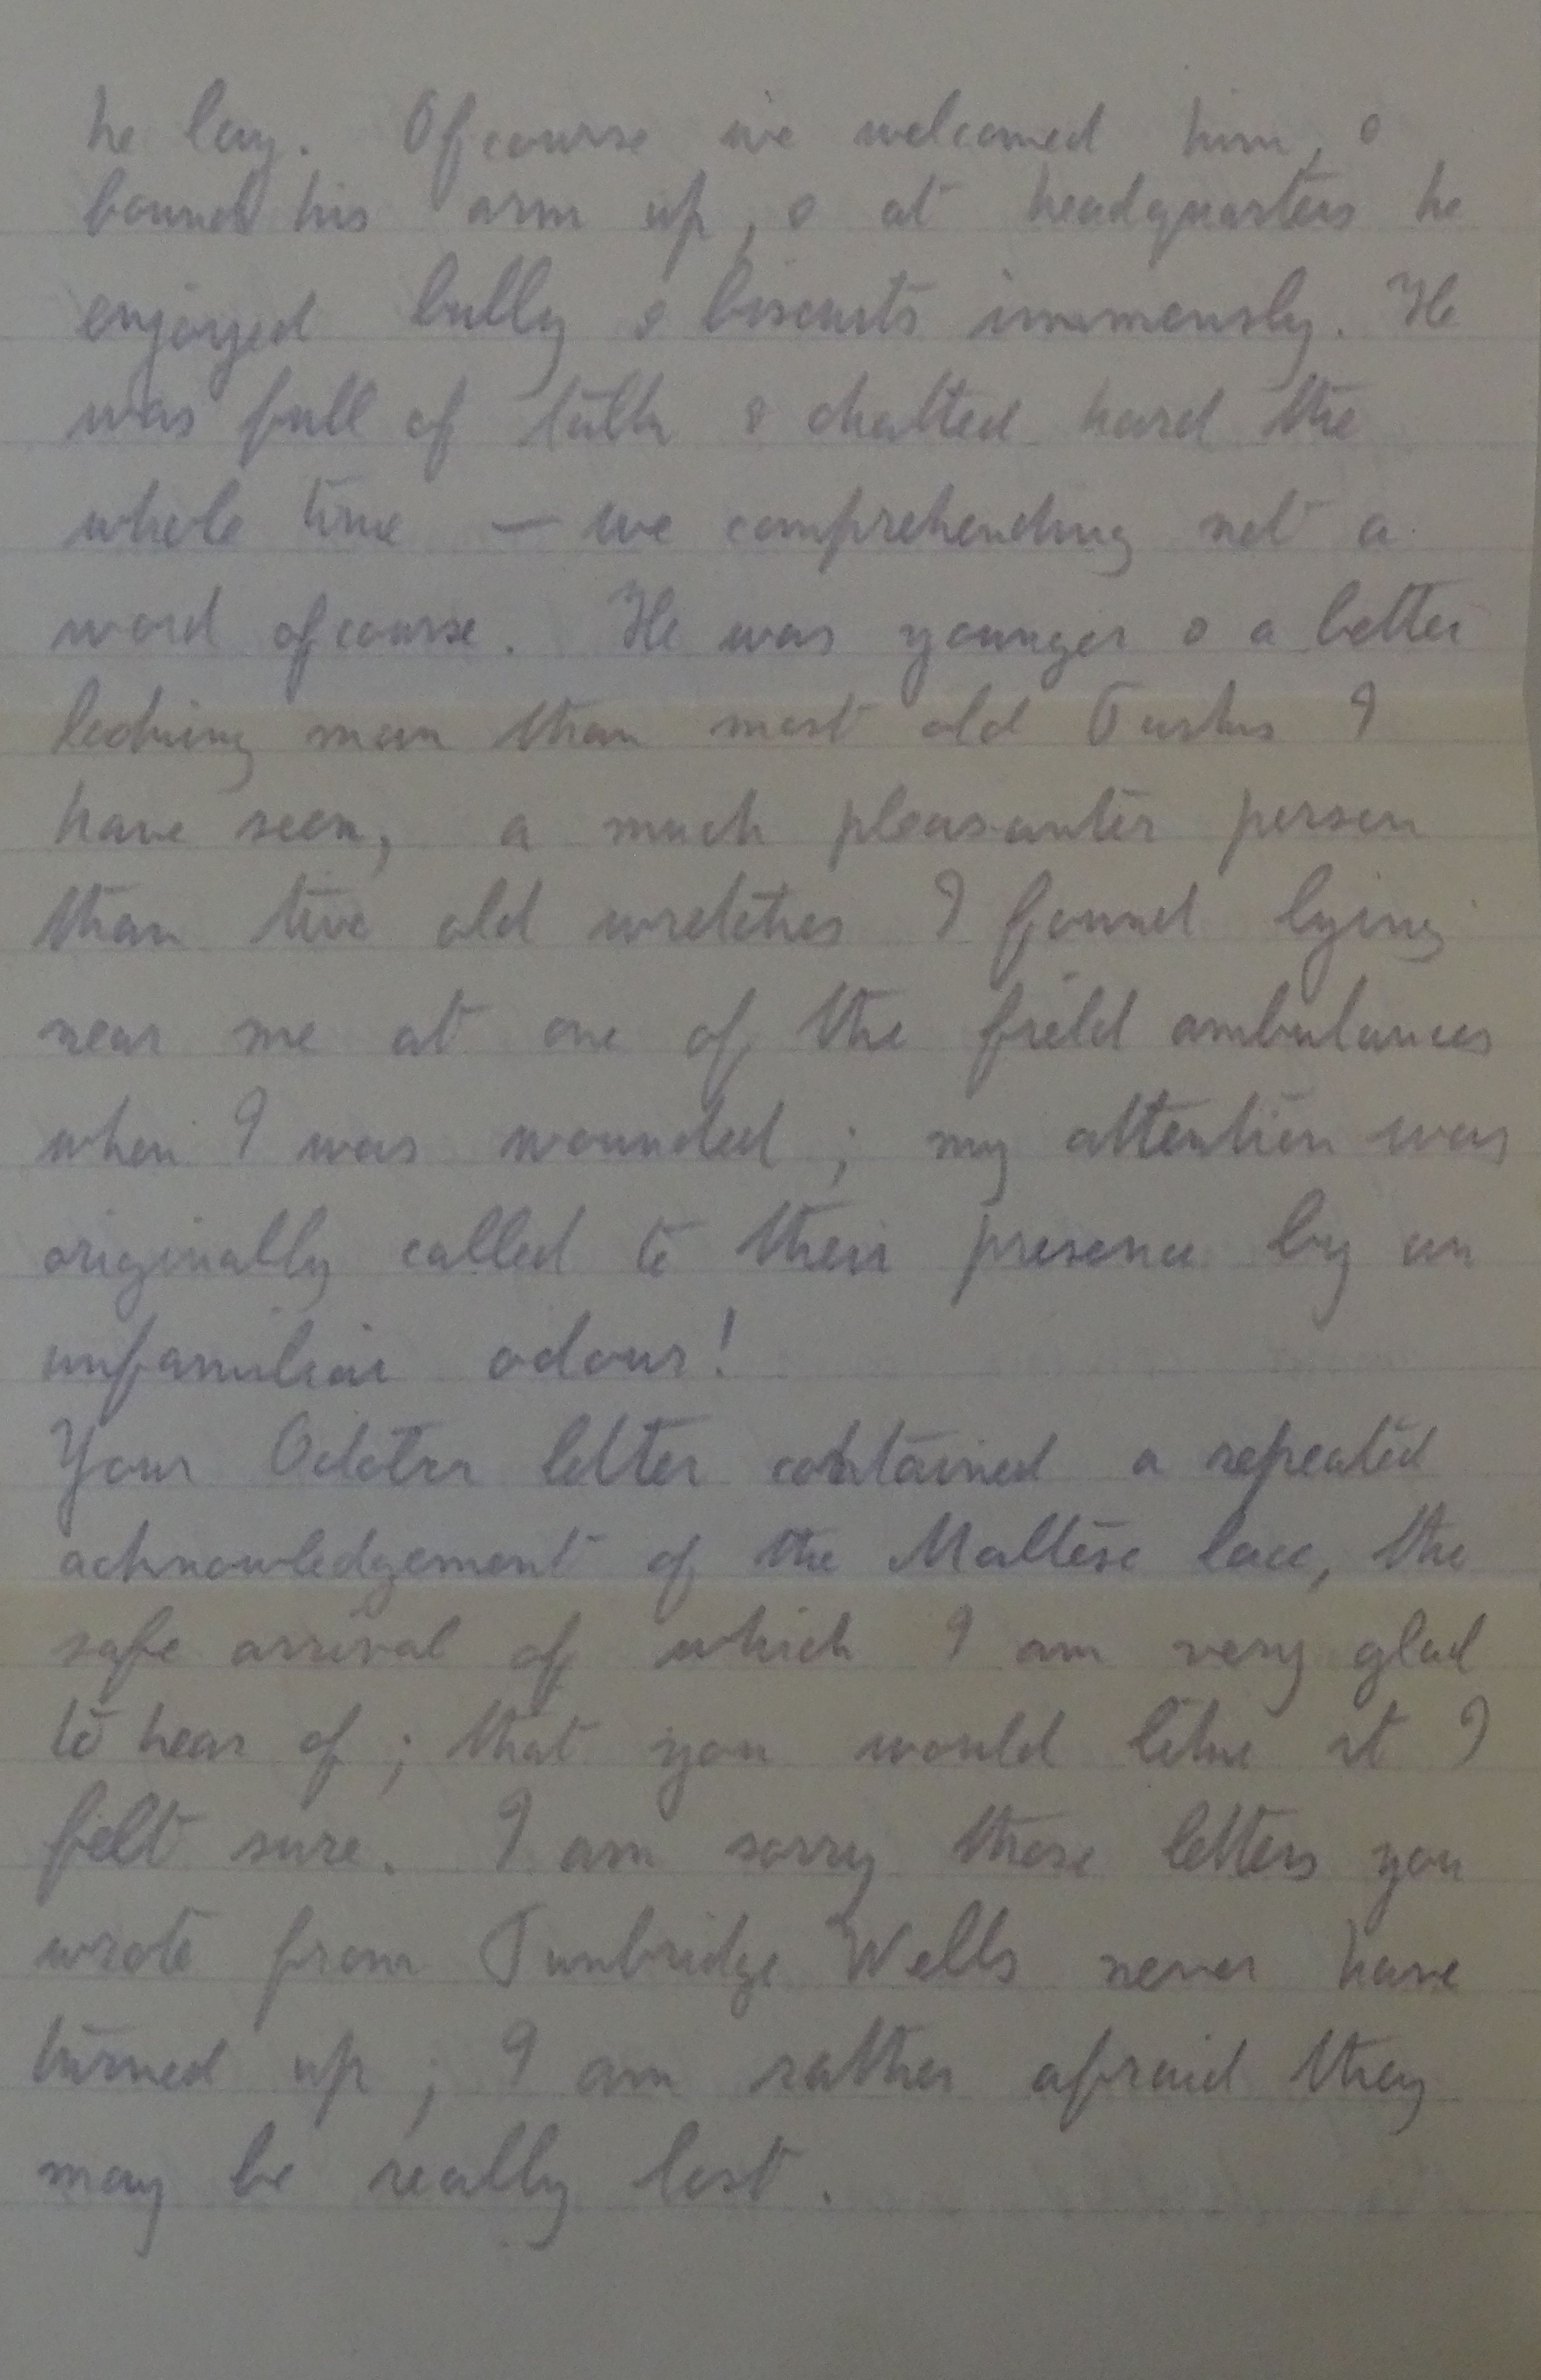 he lay. Ofcourse we welcomed him, &
bound his arm up, & at headquarters he
enjoyed bully & biscuits immensely. He
was full of talk & chatted hard the
whole time — we comprehending not a
word ofcourse. He was younger & a better
looking man than most old Turks I
have seen, a much pleasanter person
than two old wretches I found lying
near me at one of the field ambulances
when I was wounded ; my attention was
originally called to their presence by an
unfamiliar odour!
Your October letter contained a repeated
acknowledgement of the Maltese lace, the
safe arrival of which I am very glad
to hear of ; that you would like it I
felt sure. I am sorry those letters you
wrote from Tunbridge Wells never have
turned up ; I am rather afraid they
may be really lost.